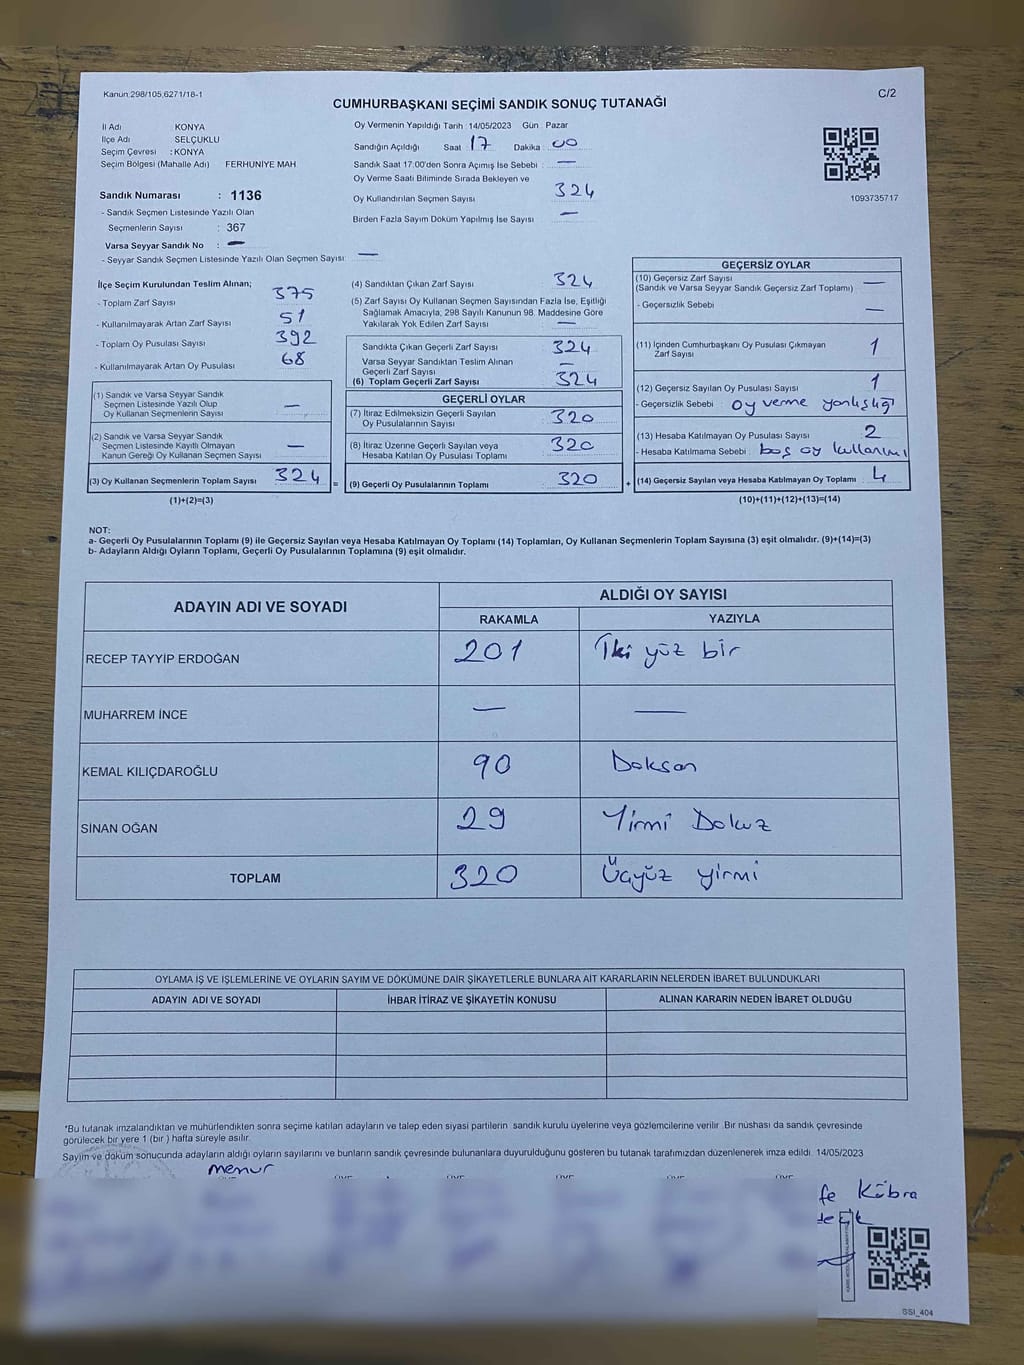 Kanun:298/105,6271/18-1
C/2
CUMHURBAŞKANI SEÇİMİ SANDIK SONUÇ TUTANAĞI
İl Adı : KONYA
İlçe Adı SELÇUKLU
Seçim Çevresi : KONYA
Seçim Bölgesi (Mahalle Adı) FERHUNİYE MAH
Sandık Numarası : 1136
- Sandık Seçmen Listesinde Yazılı Olan
Seçmenlerin Sayısı : 367
Varsa Seyyar Sandık No : —
- Seyyar Sandık Seçmen Listesinde Yazılı Olan Seçmen Sayısı: —
Oy Vermenin Yapıldığı Tarih : 14/05/2023 Gün : Pazar
Sandığın Açıldığı Saat : 17 Dakika : 00
Sandık Saat 17:00'den Sonra Açımış İse Sebebi : —
Oy Verme Saati Bitiminde Sırada Bekleyen ve
Oy Kullandırılan Seçmen Sayısı 324
Birden Fazla Sayım Döküm Yapılmış İse Sayısı —
1093735717
İlçe Seçim Kurulundan Teslim Alınan;
- Toplam Zarf Sayısı 375
- Kullanılmayarak Artan Zarf Sayısı 51
- Toplam Oy Pusulası Sayısı 392
- Kullanılmayarak Artan Oy Pusulası 68
(1) Sandık ve Varsa Seyyar Sandık
Seçmen Listesinde Yazılı Olup
Oy Kullanan Seçmenlerin Sayısı —
(2) Sandık ve Varsa Seyyar Sandık
Seçmen Listesinde Kayıtlı Olmayan
Kanun Gereği Oy Kullanan Seçmen Sayısı —
(3) Oy Kullanan Seçmenlerin Toplam Sayısı 324 =
(1)+(2)=(3)
(4) Sandıktan Çıkan Zarf Sayısı 324
(5) Zarf Sayısı Oy Kullanan Seçmen Sayısından Fazla İse, Eşitliği
Sağlamak Amacıyla, 298 Sayılı Kanunun 98. Maddesine Göre
Yakılarak Yok Edilen Zarf Sayısı —
Sandıkta Çıkan Geçerli Zarf Sayısı 324
Varsa Seyyar Sandıktan Teslim Alınan
Geçerli Zarf Sayısı —
(6) Toplam Geçerli Zarf Sayısı 324
GEÇERLİ OYLAR
(7) İtiraz Edilmeksizin Geçerli Sayılan
Oy Pusulası Sayısı 320
(8) İtiraz Üzerine Geçerli Sayılan veya
Hesaba Katılan Oy Pusulası Toplamı 320
(9) Geçerli Oy Pusulalarının Toplamı 320 +
GEÇERSİZ OYLAR
(10) Geçersiz Zarf Sayısı
(Sandık ve Varsa Seyyar Sandık Geçersiz Zarf Toplamı) —
- Geçersizlik Sebebi : —
(11) İçinden Cumhurbaşkanı Oy Pusulası Çıkmayan
Zarf Sayısı 1
(12) Geçersiz Sayılan Oy Pusulası Sayısı 1
- Geçersizlik Sebebi : oy verme yanlışlığı
(13) Hesaba Katılmayan Oy Pusulası Sayısı 2
- Hesaba Katılmama Sebebi : boş oy kullanımı
(14) Geçersiz Sayılan veya Hesaba Katılmayan Oy Toplamı 4
(10)+(11)+(12)+(13)=(14)
NOT:
a- Geçerli Oy Pusulalarının Toplamı (9) ile Geçersiz Sayılan veya Hesaba Katılmayan Oy Toplamı (14) Toplamları, Oy Kullanan Seçmenlerin Toplam Sayısına (3) eşit olmalıdır. (9)+(14)=(3)
b- Adayların Aldığı Oyların Toplamı, Geçerli Oy Pusulalarının Toplamına (9) eşit olmalıdır.
ADAYIN ADI VE SOYADI ALDIĞI OY SAYISI
RAKAMLA YAZIYLA
RECEP TAYYİP ERDOĞAN 201 İki yüz bir
MUHARREM İNCE — —
KEMAL KILIÇDAROĞLU 90 Doksan
SİNAN OĞAN 29 Yirmi Dokuz
TOPLAM 320 Üçyüz yirmi
OYLAMA İŞ VE İŞLEMLERİNE VE OYLARIN SAYIM VE DÖKÜMÜNE DAİR ŞİKAYETLERLE BUNLARA AİT KARARLARIN NELERDEN İBARET BULUNDUKLARI
ADAYIN ADI VE SOYADI İHBAR İTİRAZ VE ŞİKAYETİN KONUSU ALINAN KARARIN NEDEN İBARET OLDUĞU
*Bu tutanak imzalandıktan ve mühürlendikten sonra seçime katılan adayların ve talep eden siyasi partilerin sandık kurulu üyelerine veya gözlemcilerine verilir. Bir nüshası da sandık çevresinde
görülecek bir yere 1 (bir) hafta süreyle asılır.
Sayım ve döküm sonucunda adayların aldığı oyların sayılarını ve bunların sandık çevresinde bulunanlara duyurulduğunu gösteren bu tutanak tarafımızdan düzenlenerek imza edildi. 14/05/2023
memur
fe Kübra
SSI_404